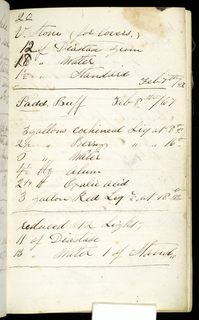 20
V. Stone (for covers,)
12 " Diastase Gum
18 " Water
1 " Standard
Feb 7th/68
Padd. Buff Feb 8th/67
3 gallons Cochineal Liq at 8
2 " Berry " " 16
" Water
alum
Oxalic acid
3 gallon Red Liq. at 18
reduced std Light,
11 of Diastase
13 " Water 1 of Stand,